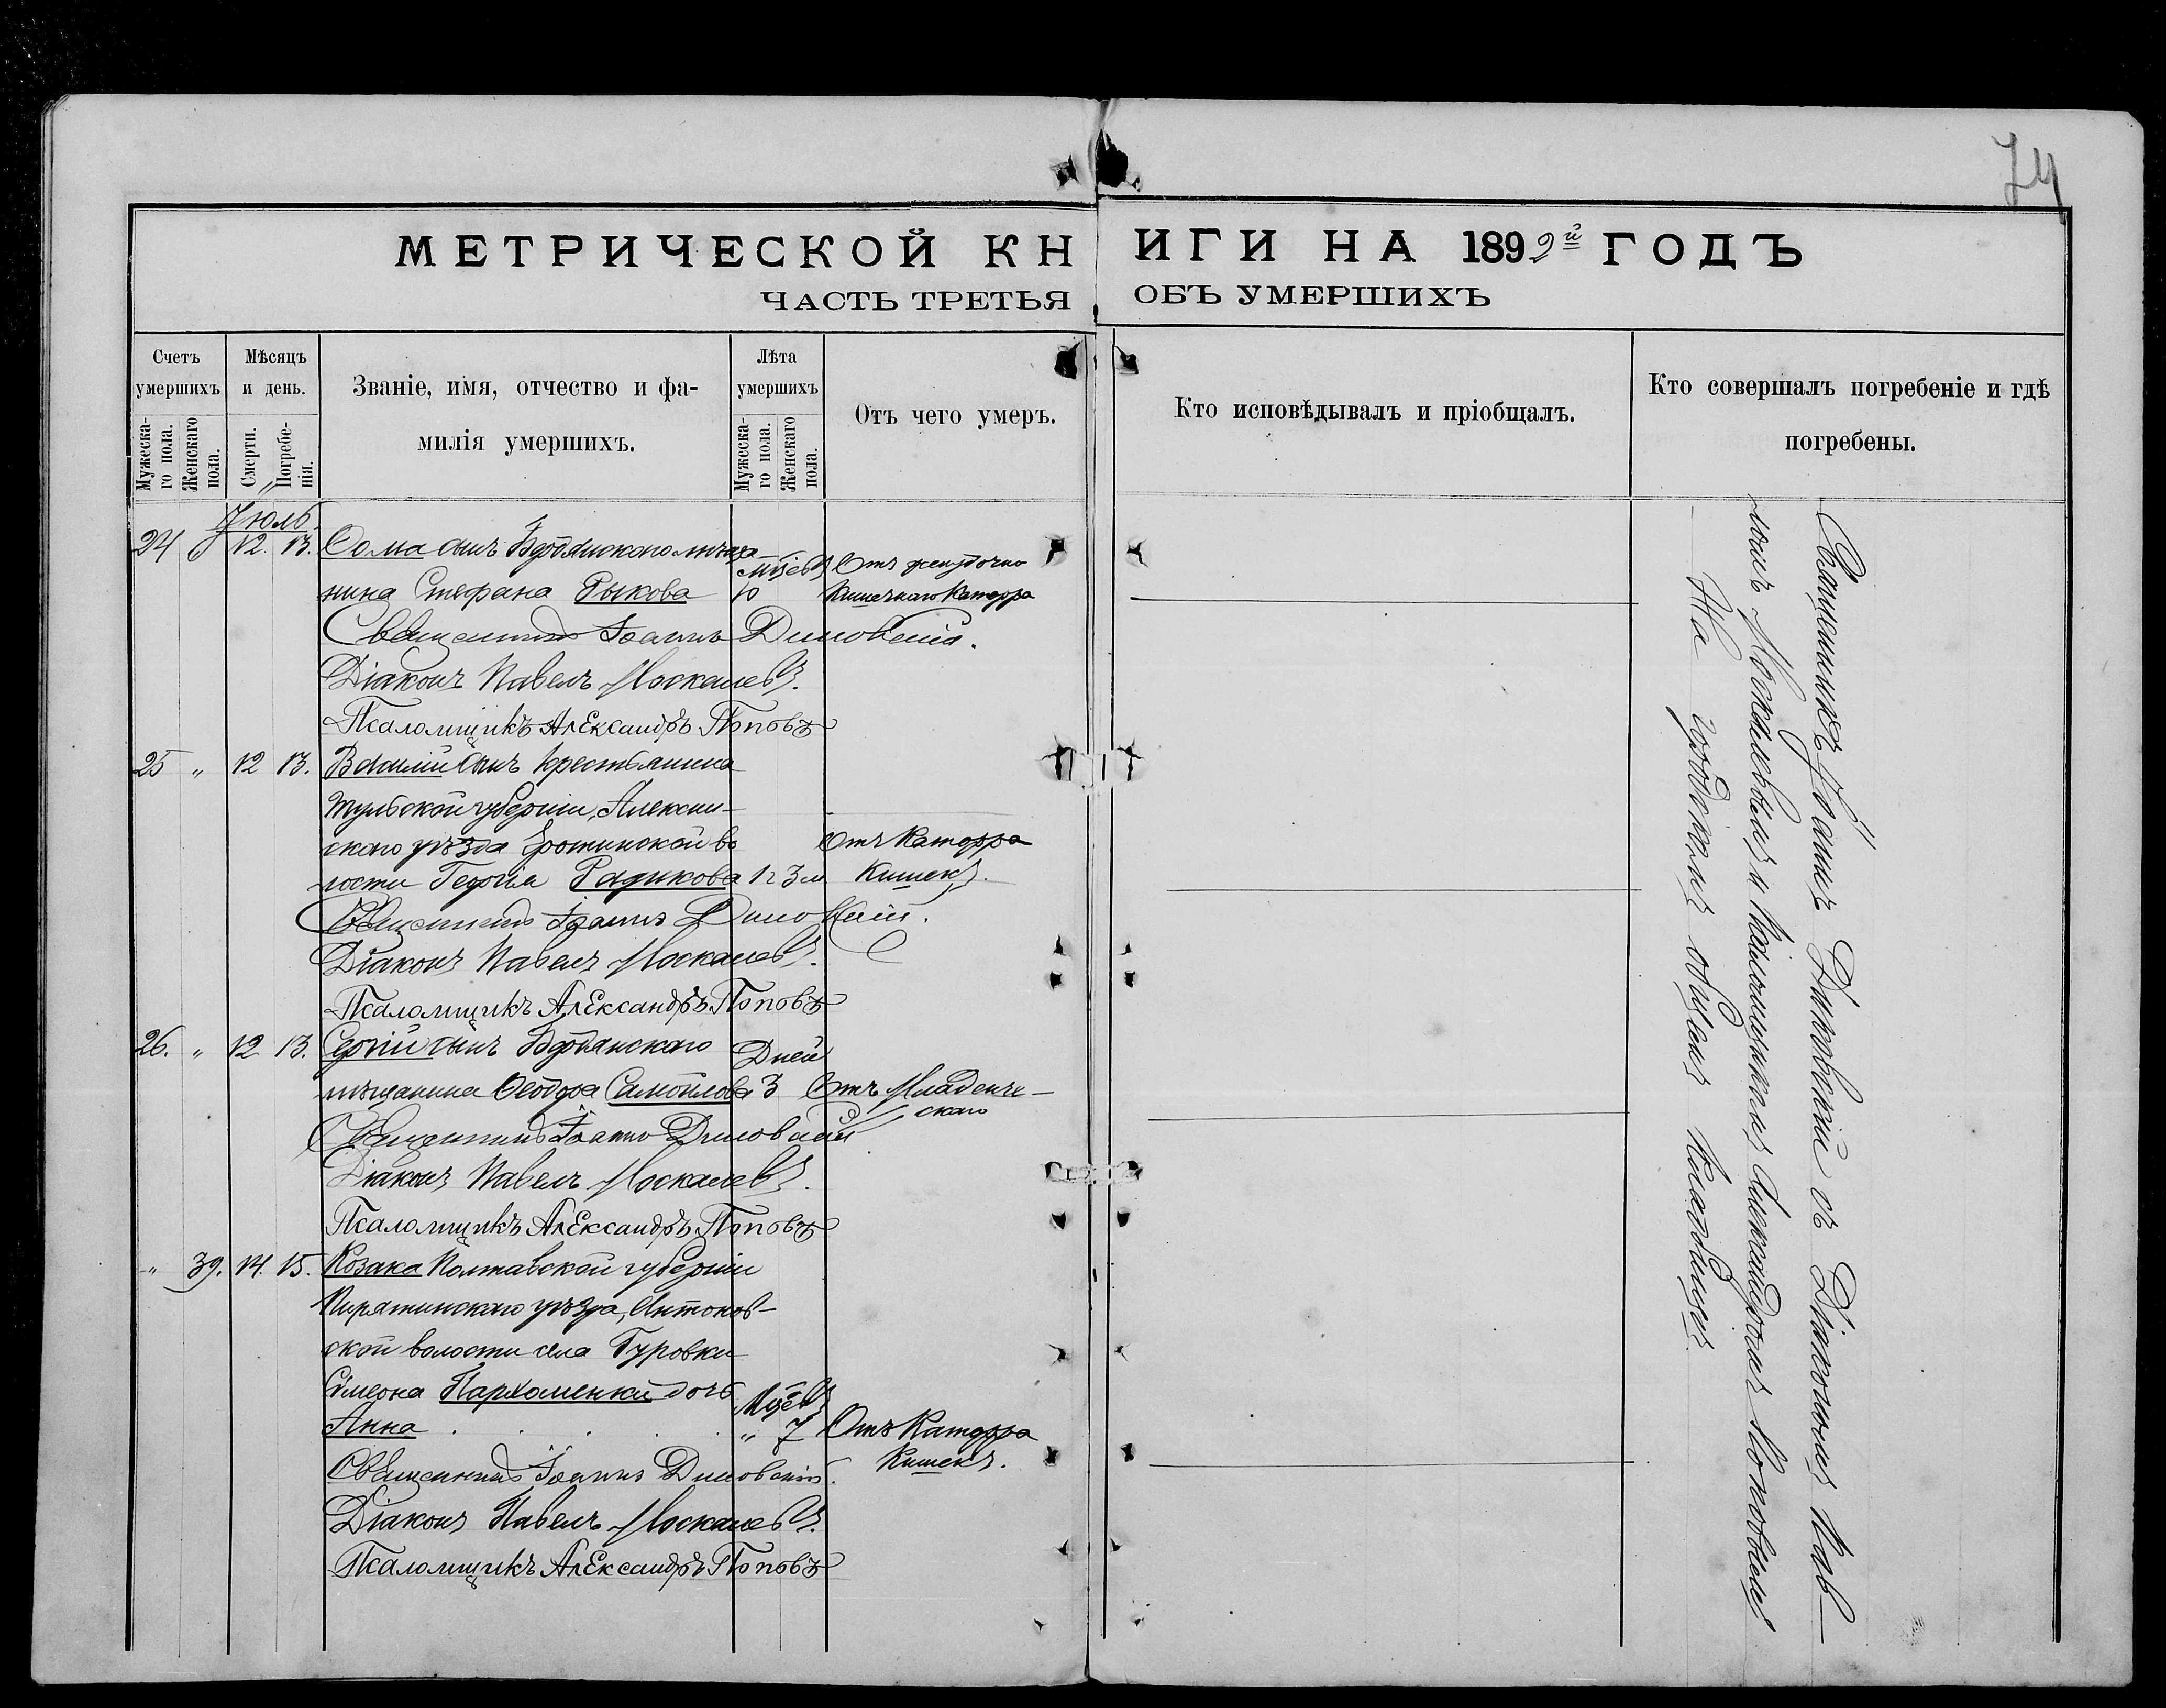 74
МЕТРИЧЕСКОЙ КНИГИ НА 1892й ГОДЪ
ЧАСТЬ ТРЕТЬЯ ОБЪ УМЕРШИХЪ
Счетъ умершихъ
Мужеска-го пола.
Женскаго пола.
Мѣсяцъ и день.
Смерти.
Погребе-нія.
Званіе, имя, отчество и фа-
милія умершихъ.
Лѣта умершихъ
Мужеска-го пола.
Женскаго пола.
Отъ чего умеръ.
Кто исповѣдывалъ и пріобщалъ.
Кто совершалъ погребеніе и гдѣ
погребены.
Іюль
24 12. 13. Ѳома сынъ Бердянскаго мѣща-
нина Стефана Рыкова мцевъ 10 Отъ желудочно
кишечнаго катарра
Священникъ Іоаннъ Диновскій.
Діаконъ Павелъ Москалевъ.
Псаломщикъ Александръ Поповъ
25 " 12 13. Василій сынъ крестьянина
Тульской губерніи, Алексин-
скаго уѣзда во
лости Георгія 1г 3м Отъ катарра
кишекъ.
Священникъ Іоаннъ Диновскій.
Діаконъ Павелъ Москалевъ.
Псаломщикъ Александръ Поповъ
26. " 12 13. Сергій сынъ Бердянскаго Дней
мѣщанина Ѳеодора Самойлова 3 Отъ младенче-
скаго
Священникъ Іоаннъ Диновскій
Діаконъ Павелъ Москалевъ.
Псаломщикъ Александръ Поповъ
" 39. 14. 15. Козака Полтавской губерніи
Пирятинскаго уѣзда, Антонов-
ской волости села Гуровки
Симеона Пархоменки дочь Мцевъ
Анна . . . . . " 7 Отъ катарра
кишекъ.
Священникъ Іоаннъ Диновскій.
Діаконъ Павелъ Москалевъ.
Псаломщикъ Александръ Поповъ
Священникъ Іоаннъ Диновскій съ Діакономъ Пав-
ломъ Москалевымъ и Псаломщикомъ Александромъ Поповымъ
На городскомъ общемъ кладбищѣ.